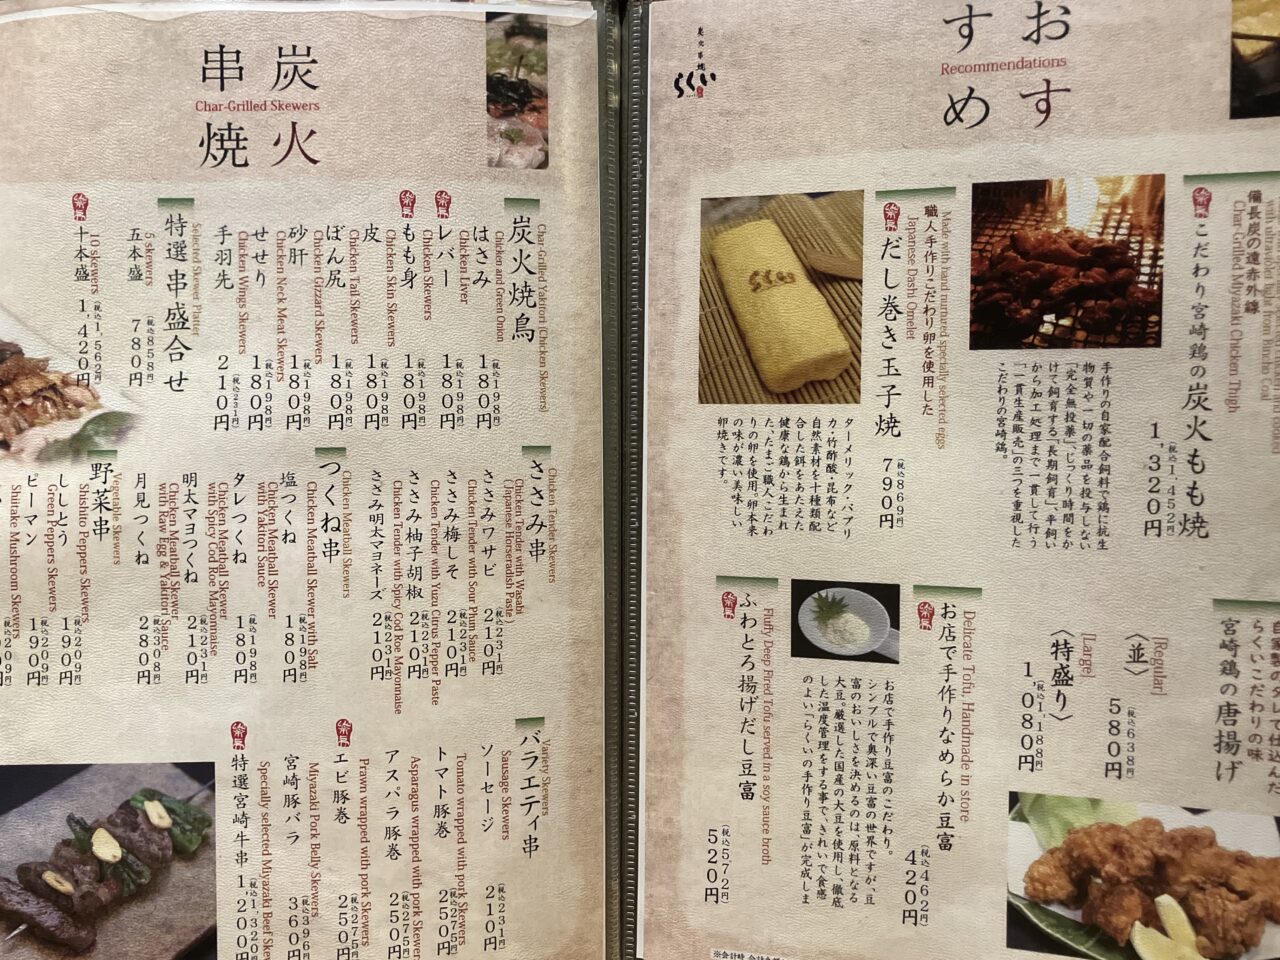 おすすめ
Recommendations
炭火串焼
らくい
with ultraviolet light from Bincho Coal
備長炭の遠赤外線
Char-Grilled Miyazaki Chicken Thigh
こだわり宮崎鶏の炭火もも焼
(税込1,452円)
1,320円
手作りの自家配合飼料で鶏に抗生
物質や一切の薬品を投与しない
「完全無投薬」、じっくり時間をか
けて飼育する「長期飼育」、半飼い
から加工処理まで一貫して行う
「一貫生産販売」の三つを重視した
こだわりの宮崎鶏。
Made with hand nurtured specially selected eggs
職人手作りこだわり卵を使用した
Japanese Dashi Omelet
だし巻き玉子焼
(税込869円)
790円
ターメリック・パプリ
カ・竹酢酸・昆布など
自然素材を十種類配
合した餌をあたえた
健康な鶏から生まれ
た、たまご職人こだわ
りの卵を使用。卵本来
の味が濃い美味しい
卵焼きです。
自家製のタレで仕込んだ
らくいこだわりの味
宮崎鶏の唐揚げ
[Regular]
〈並〉
(税込638円)
580円
[Large]
〈特盛り〉
(税込1,188円)
1,080円
Delicate Tofu, Handmade in store
お店で手作りなめらか豆富
(税込462円)
420円
お店で手作り豆富のこだわり。
シンプルで奥深い豆富の世界ですが、豆
富のおいしさを決めるのは、原料となる
大豆。厳選した国産の大豆を使用し、徹底
した温度管理をする事で、きれいで食感
のよい「らくいの手作り豆富」が完成しま
Fluffy Deep Fired Tofu served in a soy sauce broth
ふわとろ揚げだし豆富
(税込572円)
520円
炭火串焼
Char-Grilled Skewers
Char Grilled Yakitori (Chicken Skewers)
炭火焼鳥
Chicken and Green Onion
はさみ
(税込198円)
180円
Chicken Liver
レバー
(税込198円)
180円
Chicken Skewers
もも身
(税込198円)
180円
Chicken Skin Skewers
皮
(税込198円)
180円
Chicken Tail Skewers
ぼん尻
(税込198円)
180円
Chicken Gizzard Skewers
砂肝
(税込198円)
180円
Chicken Neck Meat Skewers
せせり
(税込198円)
180円
Chicken Wings Skewers
手羽先
(税込231円)
210円
Selected Skewer Platter
特選串盛合せ
5 skewers
五本盛
(税込858円)
780円
10 skewers
十本盛
(税込1,562円)
1,420円
Chicken Tender Skewers
ささみ串
Chicken Tender with Wasabi
(Japanese Horseradish Paste)
ささみワサビ
(税込231円)
210円
Chicken Tender with Sour Plum Sauce
ささみ梅しそ
(税込231円)
210円
Chicken Tender with Yuzu Citrus Pepper Paste
ささみ柚子胡椒
(税込231円)
210円
Chicken Tender with Spicy Cod Roe Mayonnaise
ささみ明太マヨネーズ
(税込231円)
210円
Chicken Meatball Skewers
つくね串
Chicken Meatball Skewer with Salt
塩つくね
(税込198円)
180円
Chicken Meatball Skewer
with Yakitori Sauce
タレつくね
(税込198円)
180円
Chicken Meatball Skewer
with Spicy Cod Roe Mayonnaise
明太マヨつくね
(税込231円)
210円
Chicken Meatball Skewer
with Raw Egg & Yakitori Sauce
月見つくね
(税込308円)
280円
Vegetable Skewers
野菜串
Shishito Peppers Skewers
ししとう
(税込209円)
190円
Green Peppers Skewers
ピーマン
(税込209円)
190円
Shiitake Mushroom Skewers
(税込209円)
Variety Skewers
バラエティ串
Sausage Skewers
ソーセージ
(税込231円)
210円
Tomato wrapped with pork Skewers
トマト豚巻
(税込275円)
250円
Asparagus wrapped with pork Skewers
アスパラ豚巻
(税込275円)
250円
Prawn wrapped with pork Skewers
エビ豚巻
(税込275円)
250円
Miyazaki Pork Belly Skewers
宮崎豚バラ
(税込396円)
360円
Specially selected Miyazaki Beef Skewers
特選宮崎牛串
(税込1,320円)
1,200円